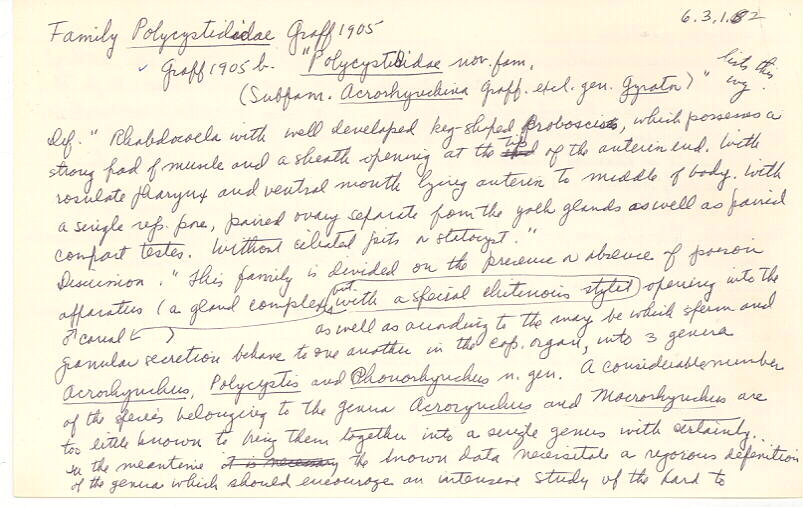 6.3.1.82
Family Polycystididae Graff 1905
Graff 1905 b. "Polycystididae nov. fam.
(Subfam. Acrorhynchina Graff. excl. gen. Gyrator)" lists this
Def. "Rhabdocoela with well developed keg-shaped proboscis, which possesses a
strong pad of muscle and a sheath opening at the tip of the anterior end. With
rosulate pharynx and ventral mouth lying anterior to middle of body. With
a single rep. pore, paired ovary separate from the yolk glands as well as paired
compact testes. Without ciliated pits or statocyst."
Discussion. "This family is divided on the presence or absence of poison
apparatus (a gland complex with a special chitenous stylet) opening into the
♂ canal) as well as according to the way by which sperm and
granular secretion behave to one another in the cop. organ, into 3 genera
Acrorhynchus, Polycystis and Phonorhynchus n. gen. A considerable number
of the species belonging to the genera Acrorynchus and Macrorhynchus are
too little known to bring them together into a single genus with certainty...
in the meantime it is necessary the known data necessitate a regorous definition
of the genera which should encourage an intensive study of the hard to